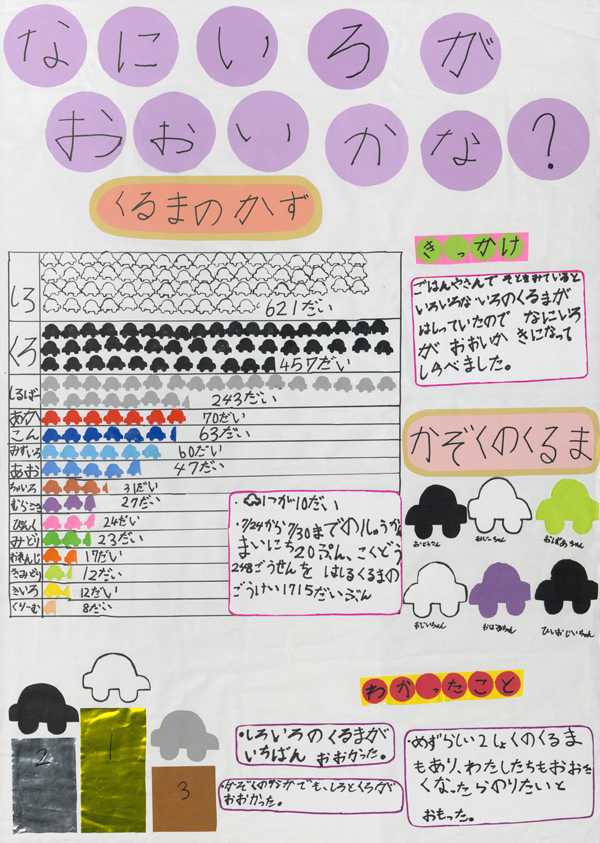 なにいろが
おおいかな?
くるまのかず
しろ 621だい
くろ 457だい
しるばー 243だい
あか 70だい
こん 63だい
みずいろ 60だい
あお 47だい
ちゃいろ 31だい
むらさき 27だい
ぴんく 24だい
みどり 23だい
おれんじ 17だい
きみどり 12だい
きいろ 12だい
くりーむ 8だい
・1つが10だい
・7/24から7/30までの1しゅうかん
まいにち20ぷん、こくどう
248ごうせんを はしるくるまの
ごうけい1715だいぶん
きっかけ
ごはんやさんで そとをみていると
いろいろないろのくるまが
はしっていたので なにいろ
が おおいか きになって
しらべました。
かぞくのくるま
おとうさん
おばあちゃん
おじいちゃん
おばあちゃん
ひいおじいちゃん
2
1
3
わかったこと
・しろいろのくるまが
いちばん おおかった。
・かぞくのなかでも、しろとくろが
おおかった。
・めずらしい2しょくのくるま
もあり、わたしたちもおおき
くなったらのりたいと
おもった。